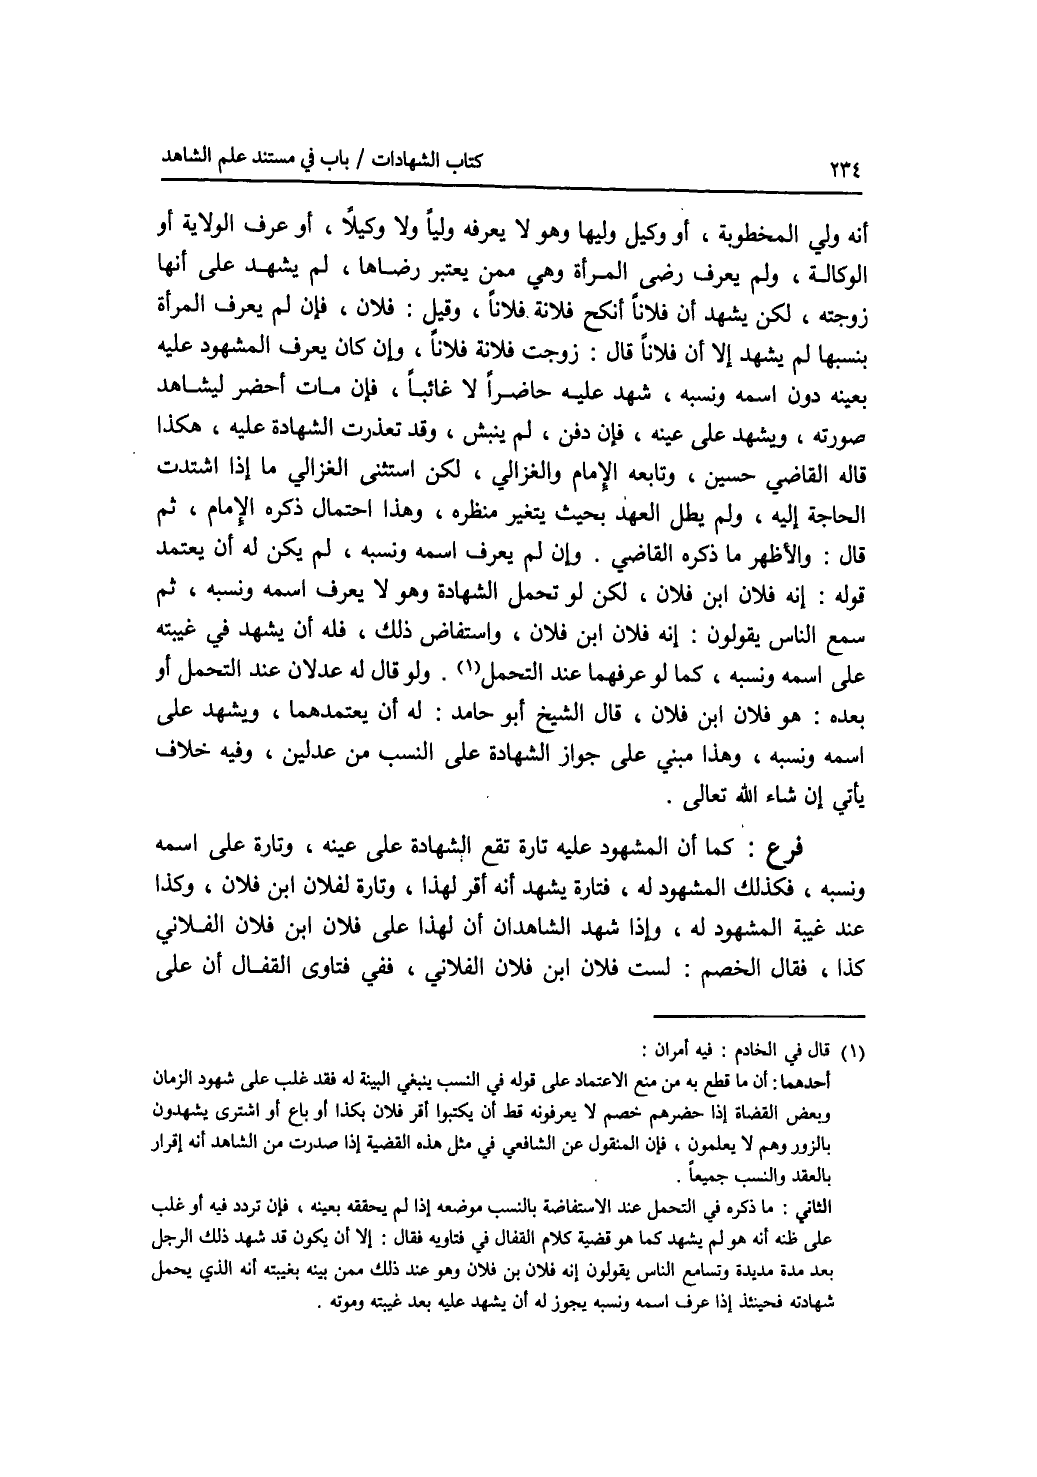 ٢٣٤
كتاب الشهادات / باب في مستند علم الشاهد
أنه ولي المخطوبة ، أو وكيل وليها وهو لا يعرفه ولياً ولا وكيلاً ، أو عرف الولاية أو
الوكالـة ، ولم يعرف رضى المـرأة وهي ممن يعتبر رضـاها ، لم يشهـد على أنها
زوجته ، لكن يشهد أن فلاناً أنكح فلانة فلاناً ، وقيل : فلان ، فإن لم يعرف المرأة
بنسبها لم يشهد إلا أن فلاناً قال : زوجت فلانة فلاناً ، وإن كان يعرف المشهود عليه
بعينه دون اسمه ونسبه ، شهد عليـه حاضـراً لا غائبـاً ، فإن مـات أحضر ليشـاهد
صورته ، ويشهد على عينه ، فإن دفن ، لم ينبش ، وقد تعذرت الشهادة عليه ، هكذا
قاله القاضي حسين ، وتابعه الإمام والغزالي ، لكن استثنى الغزالي ما إذا اشتدت
الحاجة إليه ، ولم يطل العهد بحيث يتغير منظره ، وهذا احتمال ذكره الإمام ، ثم
قال : والأظهر ما ذكره القاضي . وإن لم يعرف اسمه ونسبه ، لم يكن له أن يعتمد
قوله : إنه فلان ابن فلان ، لكن لو تحمل الشهادة وهو لا يعرف اسمه ونسبه ، ثم
سمع الناس يقولون : إنه فلان ابن فلان ، واستفاض ذلك ، فله أن يشهد في غيبته
على اسمه ونسبه ، كما لو عرفهما عند التحمل(١) . ولو قال له عدلان عند التحمل أو
بعده : هو فلان ابن فلان ، قال الشيخ أبو حامد : له أن يعتمدهما ، ويشهد على
اسمه ونسبه ، وهذا مبني على جواز الشهادة على النسب من عدلين ، وفيه خلاف
يأتي إن شاء الله تعالى .
فرع : كما أن المشهود عليه تارة تقع الشهادة على عينه ، وتارة على اسمه
ونسبه ، فكذلك المشهود له ، فتارة يشهد أنه أقر لهذا ، وتارة لفلان ابن فلان ، وكذا
عند غيبة المشهود له ، وإذا شهد الشاهدان أن لهذا على فلان ابن فلان الفـلاني
كذا ، فقال الخصم : لست فلان ابن فلان الفلاني ، ففي فتاوى القفـال أن على
(١) قال في الخادم : فيه أمران :
أحدهما : أن ما قطع به من منع الاعتماد على قوله في النسب ينبغي البينة له فقد غلب على شهود الزمان
وبعض القضاة إذا حضرهم خصم لا يعرفونه قط أن يكتبوا أقر فلان بكذا أو باع أو اشترى يشهدون
بالزور وهم لا يعلمون ، فإن المنقول عن الشافعي في مثل هذه القضية إذا صدرت من الشاهد أنه إقرار
بالعقد والنسب جميعاً .
الثاني : ما ذكره في التحمل عند الاستفاضة بالنسب موضعه إذا لم يحققه بعينه ، فإن تردد فيه أو غلب
على ظنه أنه هو لم يشهد كما هو قضية كلام القفال في فتاويه فقال : إلا أن يكون قد شهد ذلك الرجل
بعد مدة مديدة وتسامع الناس يقولون إنه فلان بن فلان وهو عند ذلك ممن بينه بغيبته أنه الذي يحمل
شهادته فحينئذ إذا عرف اسمه ونسبه يجوز له أن يشهد عليه بعد غيبته وموته .